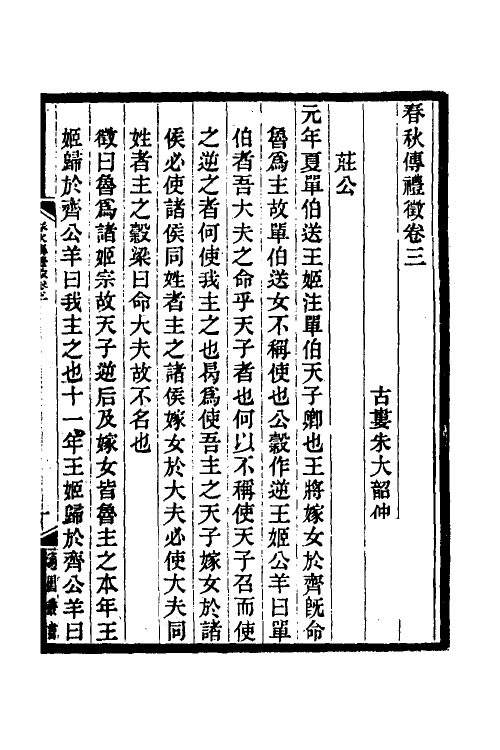 春秋傳禮徵卷三
古婁朱大韶仲
莊公
元年夏單伯送王姬注單伯天子卿也王將嫁女於齊旣命
魯爲主故單伯送女不稱使也公穀作逆王姬公羊曰單
伯者吾大夫之命乎天子者也何以不稱使天子召而使
之逆之者何使我主之也曷爲使吾主之天子嫁女於諸
侯必使諸侯同姓者主之諸侯嫁女於大夫必使大夫同
姓者主之穀梁曰命大夫故不名也
徵曰魯爲諸姬宗故天子逆后及嫁女皆魯主之本年王
姬歸於齊公羊曰我主之也十一年王姬歸於齊公羊曰
春秋傳禮徵卷三
一